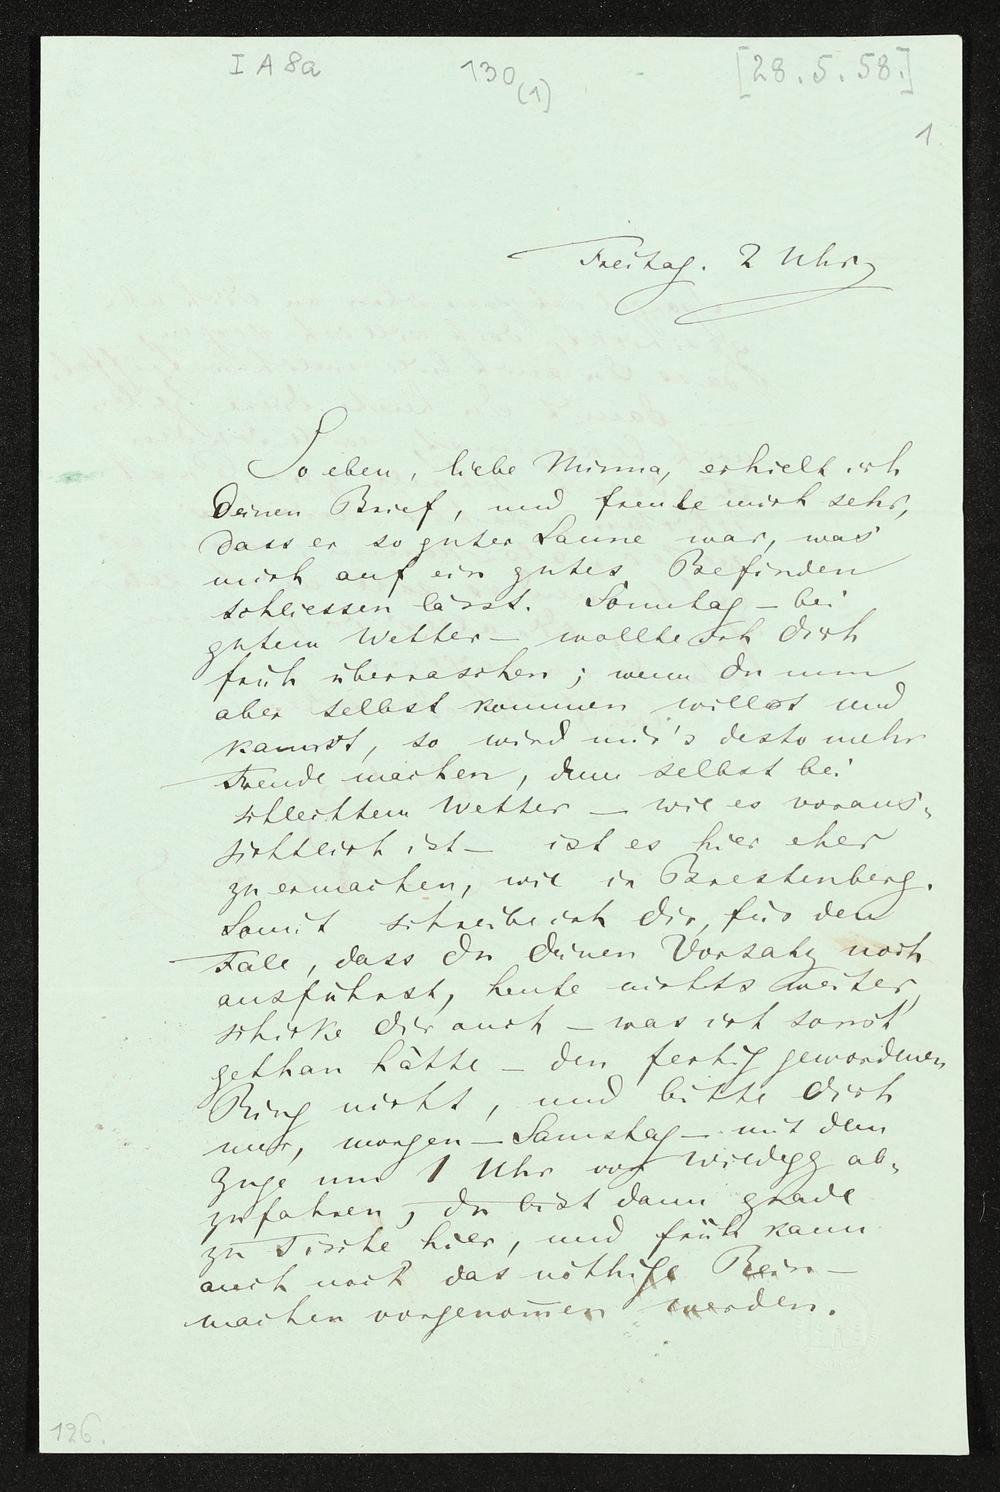 I A 8a
130
(1)
[28.5.58.]
1.
Freitag. 2 Uhr
So eben, liebe Minna, erhielt ich
Deinen Brief, und freute mich sehr,
dass er so guter Laune war, was
mich auf ein gutes Befinden
schliessen lässt. Sonntag – bei
gutem Wetter – wollte ich Dich
früh überraschen; wenn Du nun
aber selbst kommen willst und
kannst, so wird mir's desto mehr
Freude machen, denn selbst bei
schlechtem Wetter – wie es voraus-
sichtlich ist – ist es hier eher
zu ermachen, wie in Brestenberg.
Somit schreibe ich Dir, für den
Fall, dass Du Deinen Vorsatz noch
ausführst, heute nichts weiter,
schicke Dir auch – was ich sonst
gethan hätte – den fertig gewordenen
Ring nicht, und bitte Dich
nur, morgen – Samstag – mit dem
Zuge um 1 Uhr von Wildegg ab-
zufahren; Du bist dann grade
zu Tische hier, und früh kann
auch noch das nöthige Rein-
machen vorgenommen werden.
126.